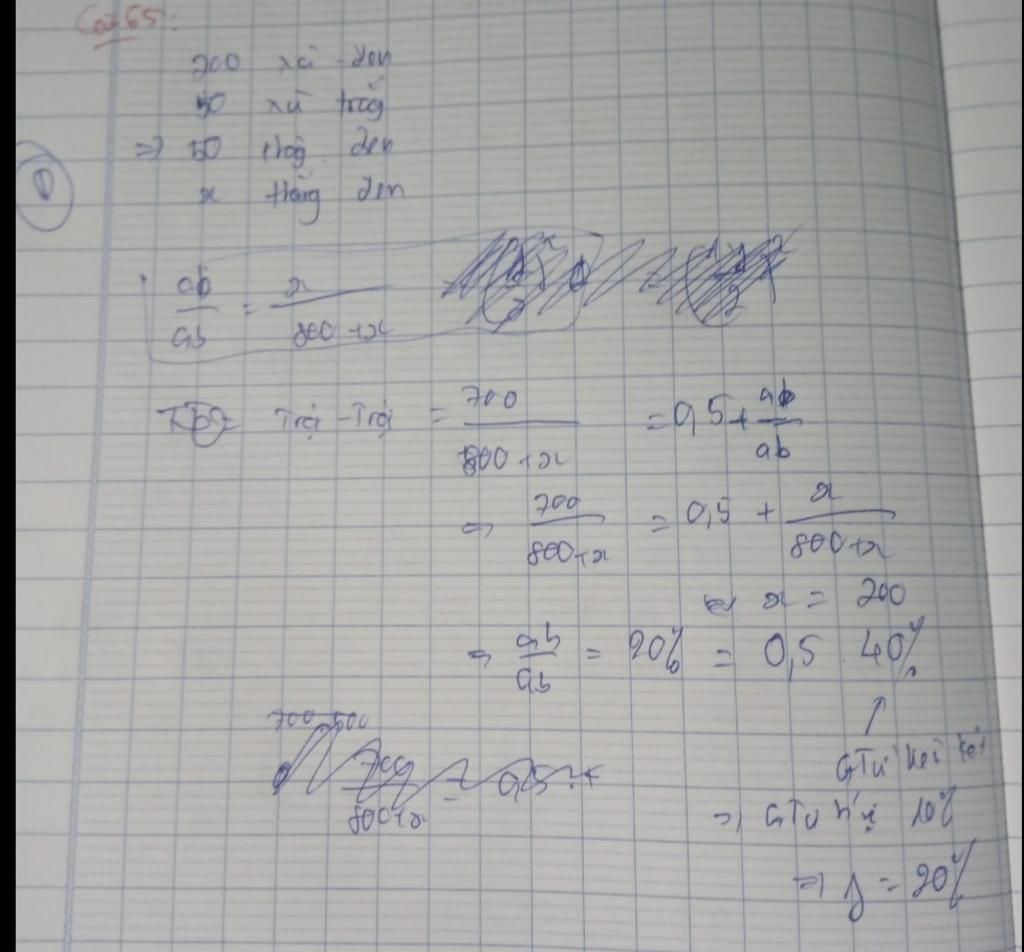 Câu 65:
200 xù đen
50 xù trắng
⇒ 50 thẳng đen
x thẳng đen
①
ab/ab = x/(800+x)
Trội - Trội = 700/(800+x) = 0,5 + ab/ab
⇒ 700/(800+x) = 0,5 + x/(800+x)
⇔ x = 200
⇒ ab/ab = 20% = 0,5 . 40%
↑
700-500
GTử liên kết
700/(800+x) = 0,5 +
⇒ GTử h/vị 10%
⇒ f = 20%